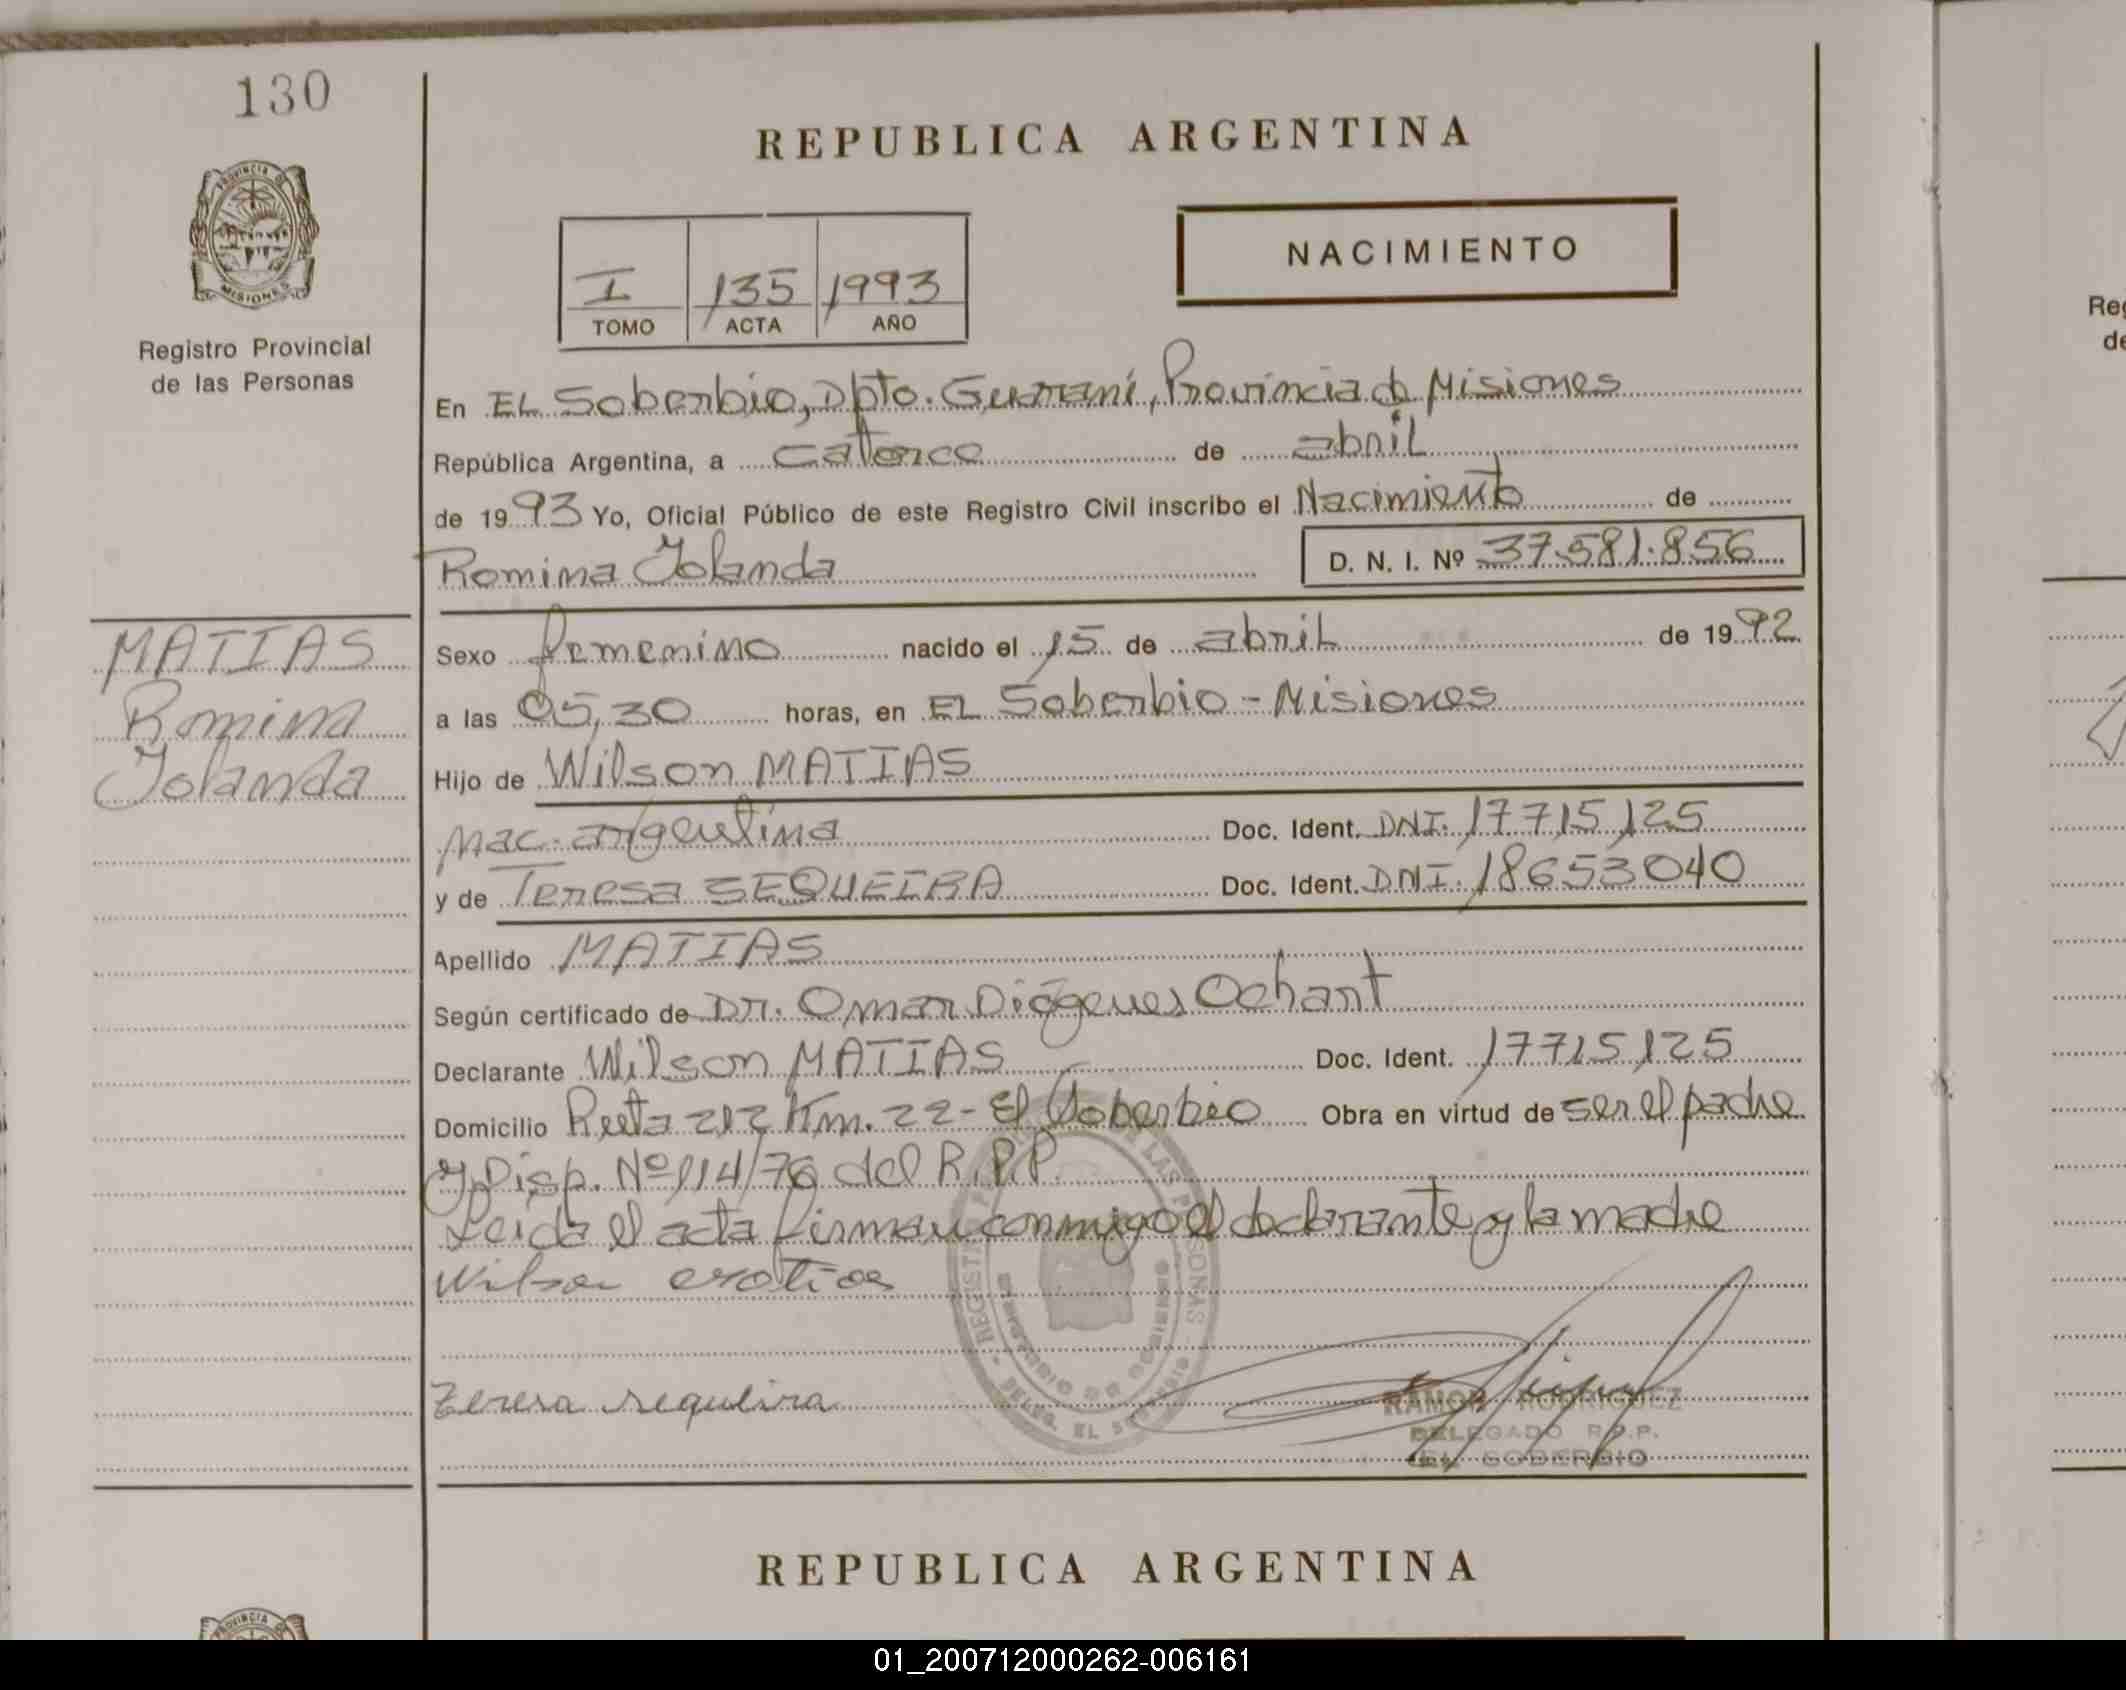 130
REPUBLICA ARGENTINA
PROVINCIA DE
MISIONES
Registro Provincial
de las Personas
NACIMIENTO
I 135 1993
TOMO ACTA AÑO
En EL Soberbio, Dpto. Guaraní, Provincia de Misiones
República Argentina, a catorce de abril
de 1993 Yo, Oficial Público de este Registro Civil inscribo el Nacimiento de
Romina Yolanda D. N. I. Nº 37.581.856
MATIAS
Romina
Yolanda
Sexo femenino nacido el 15 de abril de 1992
a las 05,30 horas, en EL Soberbio - Misiones
Hijo de Wilson MATIAS
Nac. argentina Doc. Ident. DNI. 17715125
y de Teresa SEQUEIRA Doc. Ident. DNI. 18653040
Apellido MATIAS
Según certificado de DR. Omar Diógenes Ochant
Declarante Wilson MATIAS Doc. Ident. 17715125
Domicilio Ruta 212 Km. 22 - El Soberbio Obra en virtud de ser el padre
y Disp. Nº 114/76 del R.P.P.
Leida el acta firman conmigo el declarante y la madre
Wilson matias
Teresa sequeira
REGISTRO LAS PERSONAS
MINISTERIO DE GOBIERNO
DELEG. EL SOBERBIO
RAMON RODRIGUEZ
DELEGADO R.P.P.
EL SOBERBIO
REPUBLICA ARGENTINA
PROVINCIA
Reg
de
01_200712000262-006161